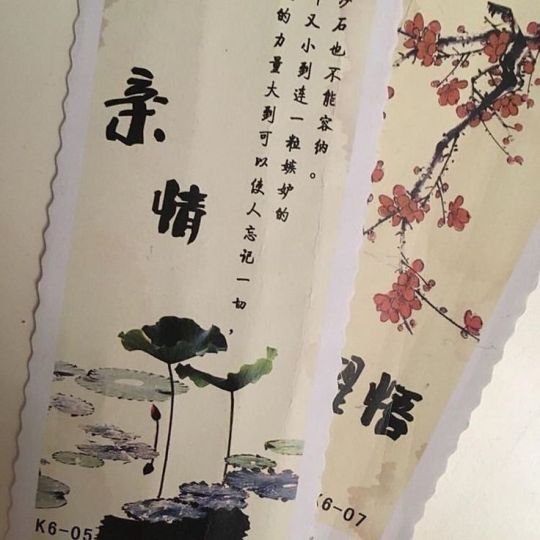 亲情
的力量大到可以使人忘记一切，
又小到连一粒嫉妒的
石也不能容纳。
K6-05
悟
6-07